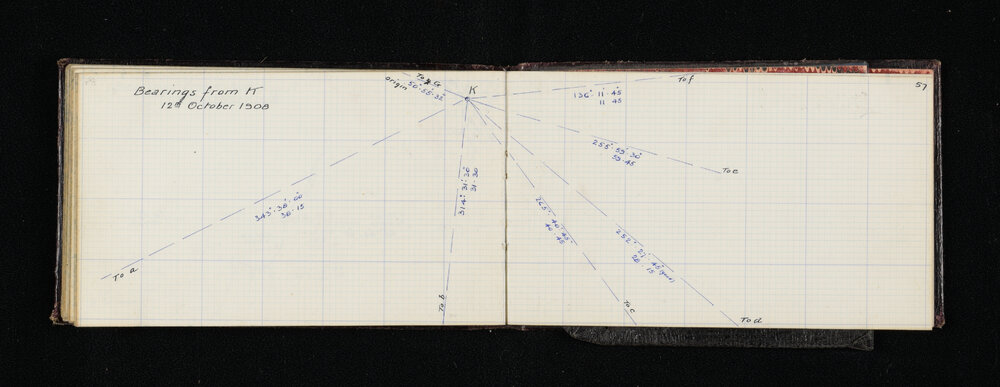 Bearings from K
12th October 1908
57
To G
origin
50° 55' 32"
K
To f
136° 11' 45
11 45
255° 59' 30"
59 45
To e
343° 38' 00"
38 15
314° 31' 30"
31 30
265° 40' 45"
40 45
252° 21'
To a
To b
To c
To d